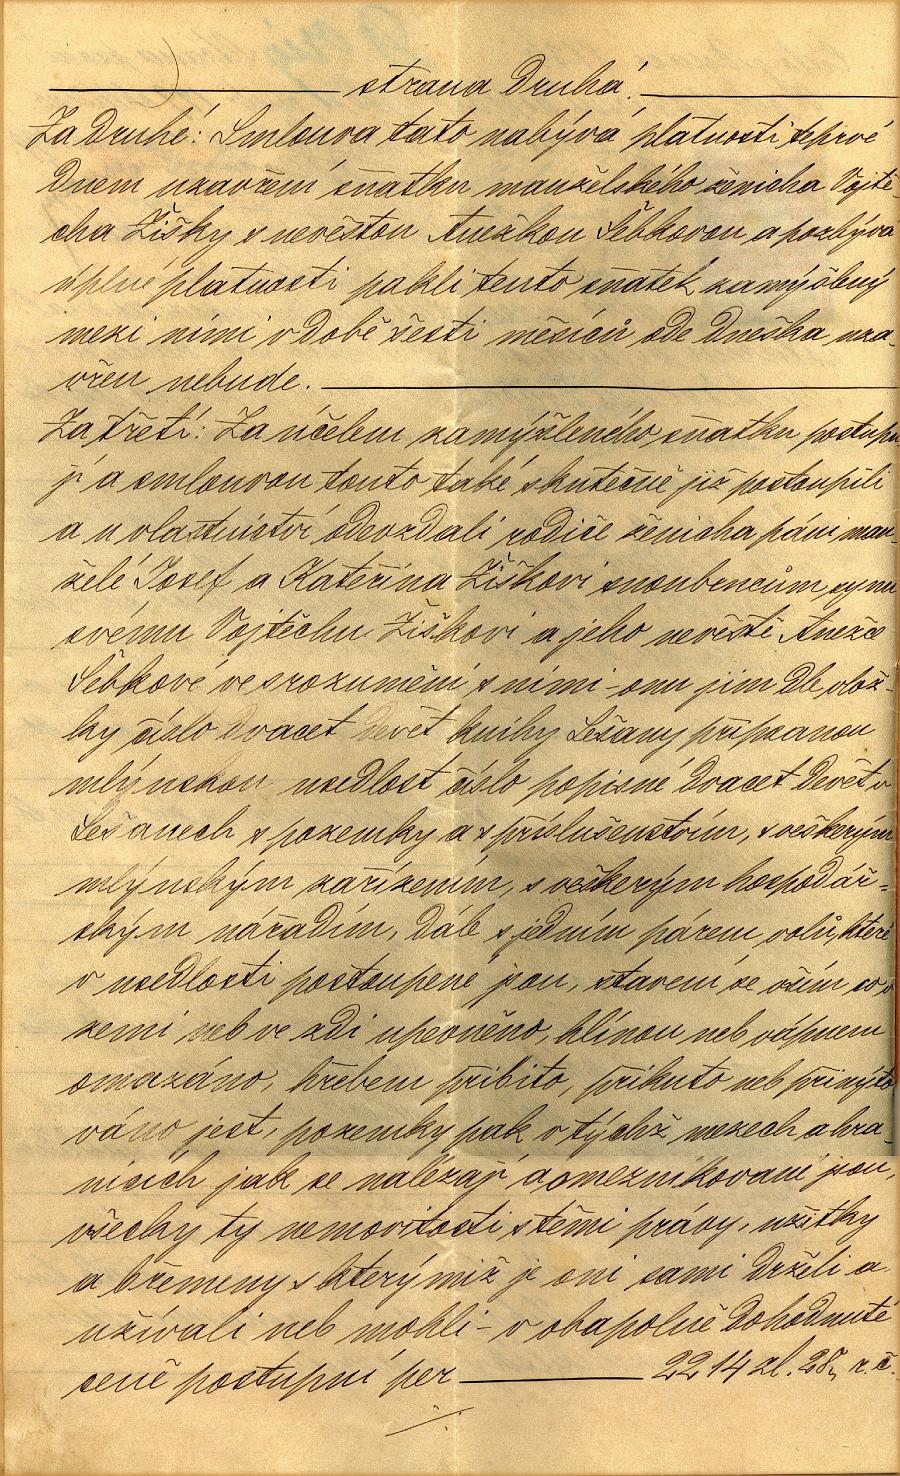 strana druhá.
Za druhé: Smlouva tato nabývá platnosti teprvé
dnem uzavření sňatku manželského ženicha Vojtě-
cha Žišky s nevěstou Anežkou Šebkovou a pozbývá
úplně platnosti pakli tento sňatek zamýšlený
mezi nimi v době šesti měsíců ode dneška uza-
vřen nebude.
Za třetí: Za účelem zamýšleného sňatku postupu
jí a smlouvou touto také skutečně již postoupili
a u vlastnictví odevzdali rodiče ženicha páni man-
želé Josef a Kateřina Žiškovi snoubencům synu
svému Vojtěchu Žiškovi a jeho nevěstě Anežce
Šebkové ve srozumění s nimi onu jim dle vlož-
ky číslo dvacet devět knihy Lešany připsanou
mlýnskou usedlost číslo popisné dvacet devět v
Lešanech s pozemky a s příslušenstvím, s veškerým
mlýnským zařízením, s veškerým hospodář-
ským nářadím, dále s jedním párem volů, které
v usedlosti postoupené jsou, stavení se vším co v
zemi neb ve zdi upevněno, hlínou neb vápnem
omazáno, hřebem přibito, přikuto neb přinýto
váno jest, pozemky pak v týchž mezech a hra-
nicích jak se nalézají a omezníkované jsou,
všecky ty nemovitosti s těmi právy, užitky
a břemeny s kterýmiž je oni sami drželi a
užívali neb mohli - v obapolně dohodnuté
ceně postupní per 2214 zl. 28 r. č.